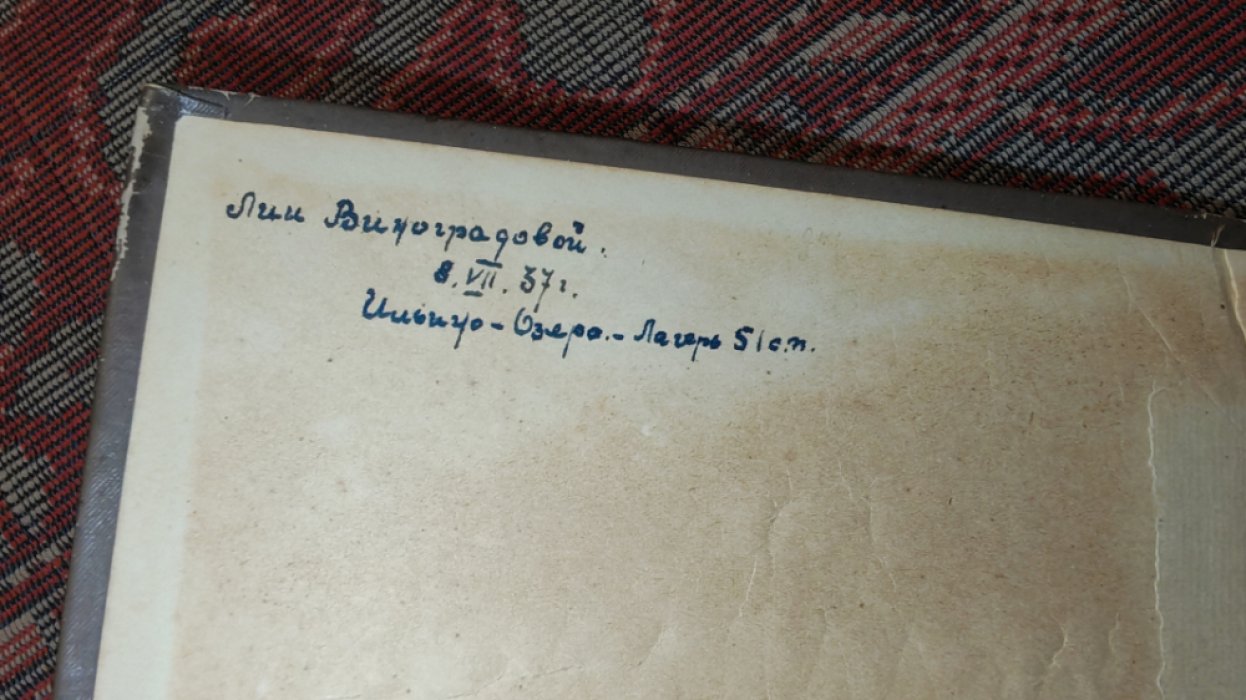 Лии Виноградовой.
8.VII.37г.
Ильино-Озеро.-Лагерь 51с.п.